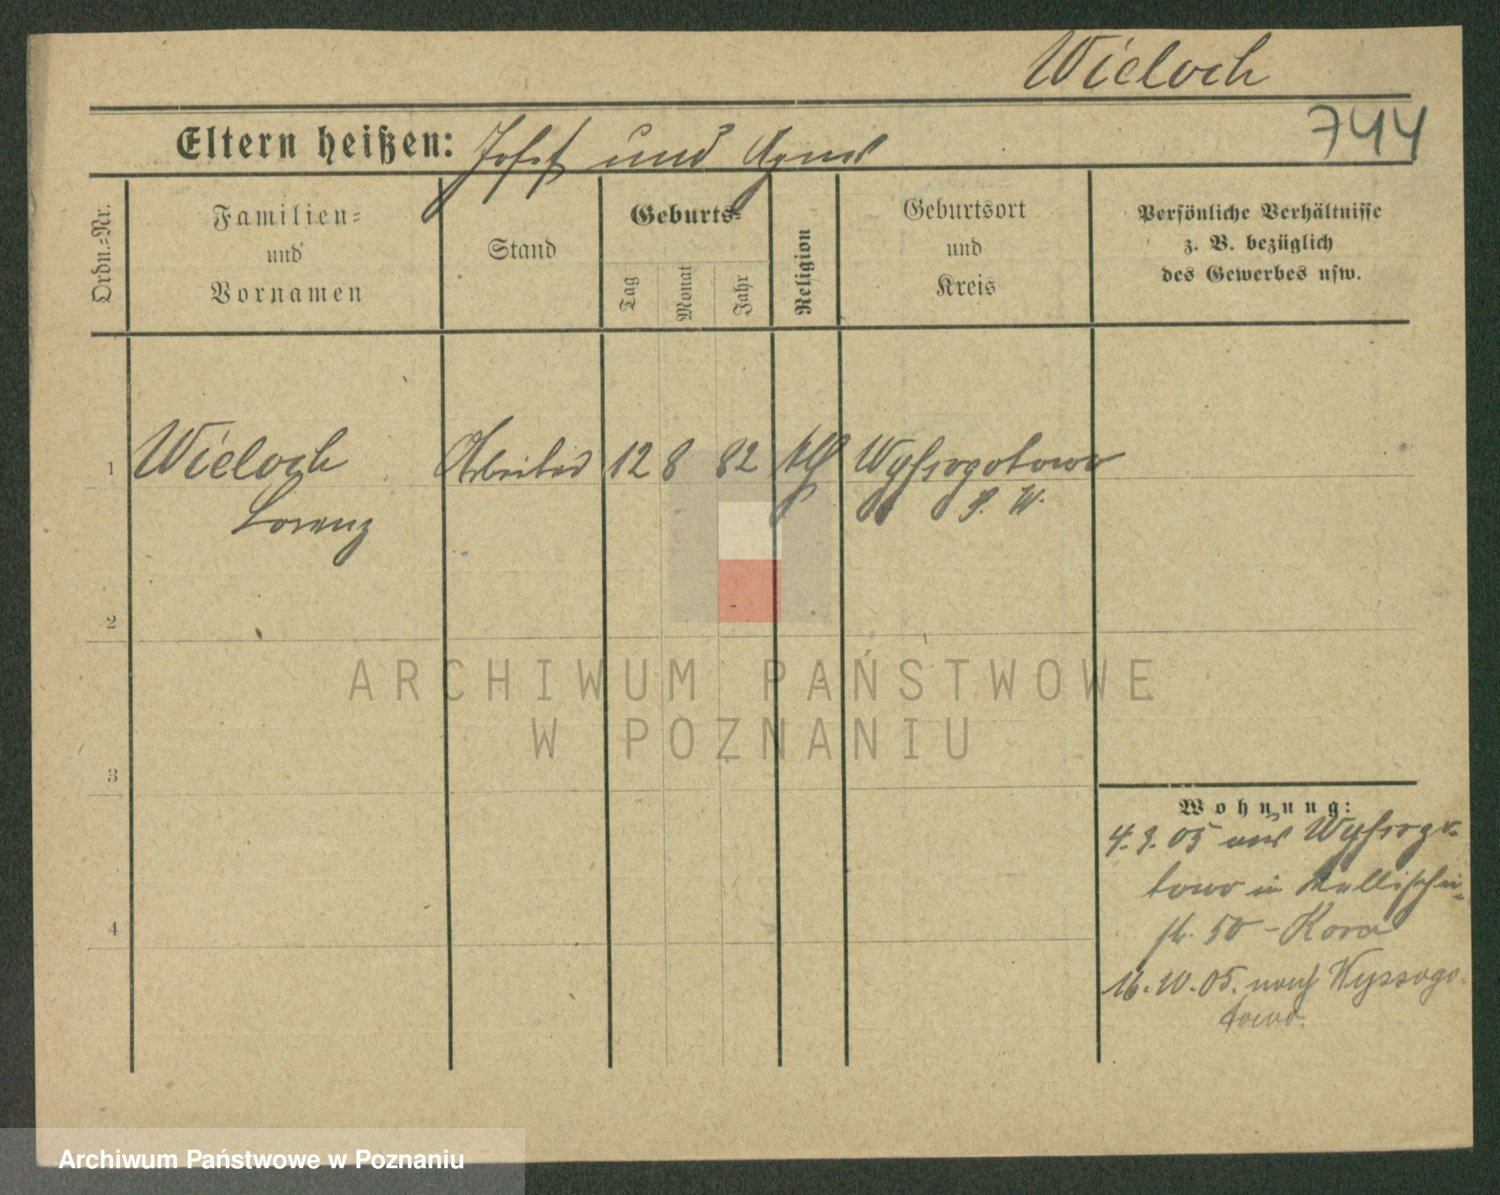 Wieloch
744
Eltern heißen: Josef und Agnes
Ordn.=Nr.
Familien=
und
Vornamen
Stand
Geburts=
Tag
Monat
Jahr
Religion
Geburtsort
und
Kreis
Persönliche Verhältnisse
z. B. bezüglich
des Gewerbes usw.
1 Wieloch Arbeiter 12 8 82 kth Wyssogotowo
Lorenz P. W.
2
3
4
Wohnung:
4.9.05 aus Wyssogo-
towo in
str. 50 - Kora
16.10.05. nach Wyssogo-
towo.
ARCHIWUM PAŃSTWOWE
W POZNANIU
Archiwum Państwowe w Poznaniu